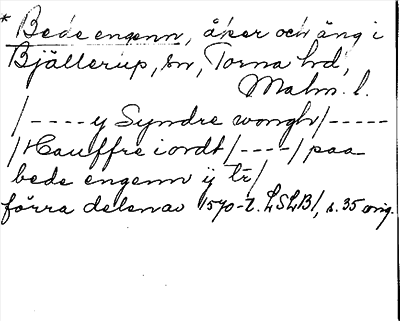 * Bede engenn, åker och äng i
Bjällerup, sn, Torna hd,
Malm. l.
/---- y Syndre wongh/-----
/Hauffre iordt/----/ paa
bede engenn ij tr/
förra delen av 1570-t. LSLB/, s. 35 orig.